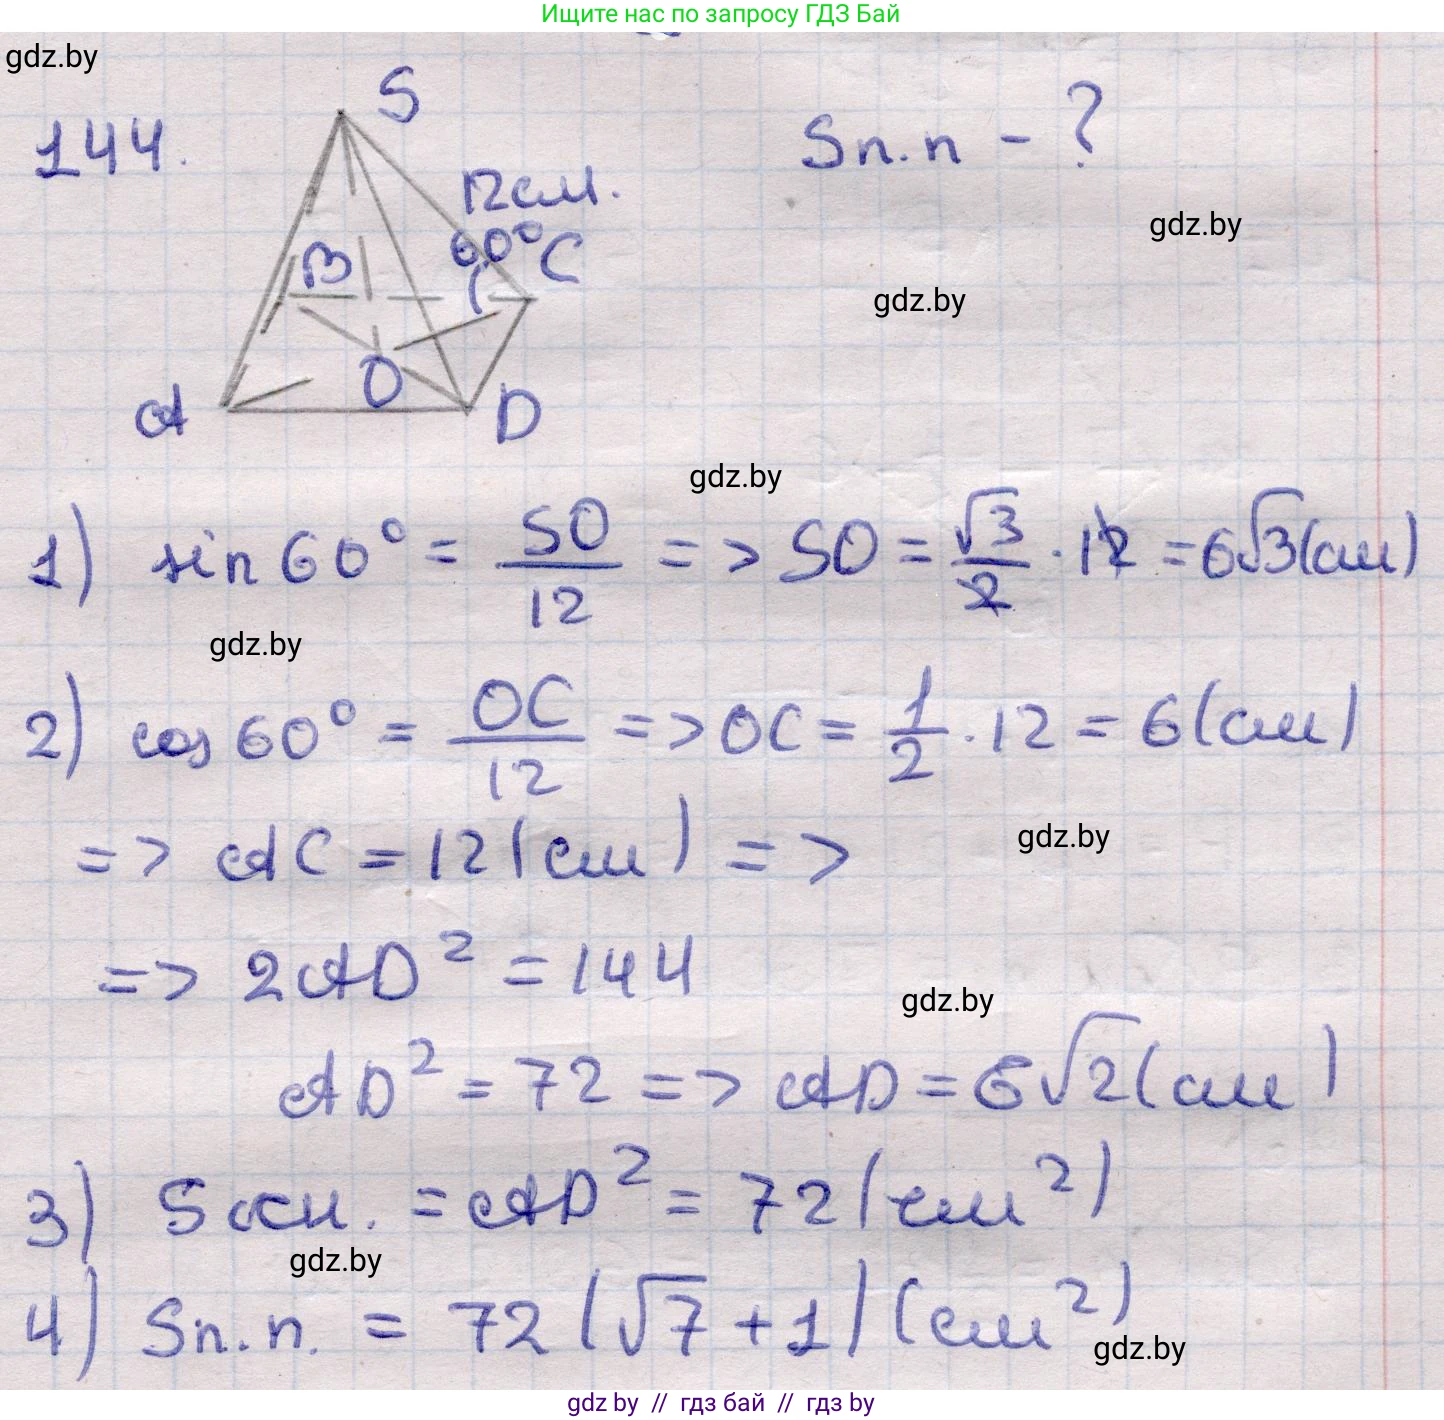 Ищите нас по запросу ГДЗ Бай
gdz.by
144.
S
12см.
60°
B
C
O
A
D
Sп.п - ?
gdz.by
gdz.by
gdz.by
1) sin 60° = SO/12 => SO = √3/2 · 12 = 6√3(см)
gdz.by
2) cos 60° = OC/12 => OC = 1/2 · 12 = 6(см)
=> AC = 12(см) =>
gdz.by
=> 2AD² = 144
gdz.by
AD² = 72 => AD = 6√2(см)
3) Sосн. = AD² = 72(см²)
gdz.by
4) Sп.п. = 72(√7 + 1)(см²)
gdz.by
gdz.by // гдз бай // гдз by